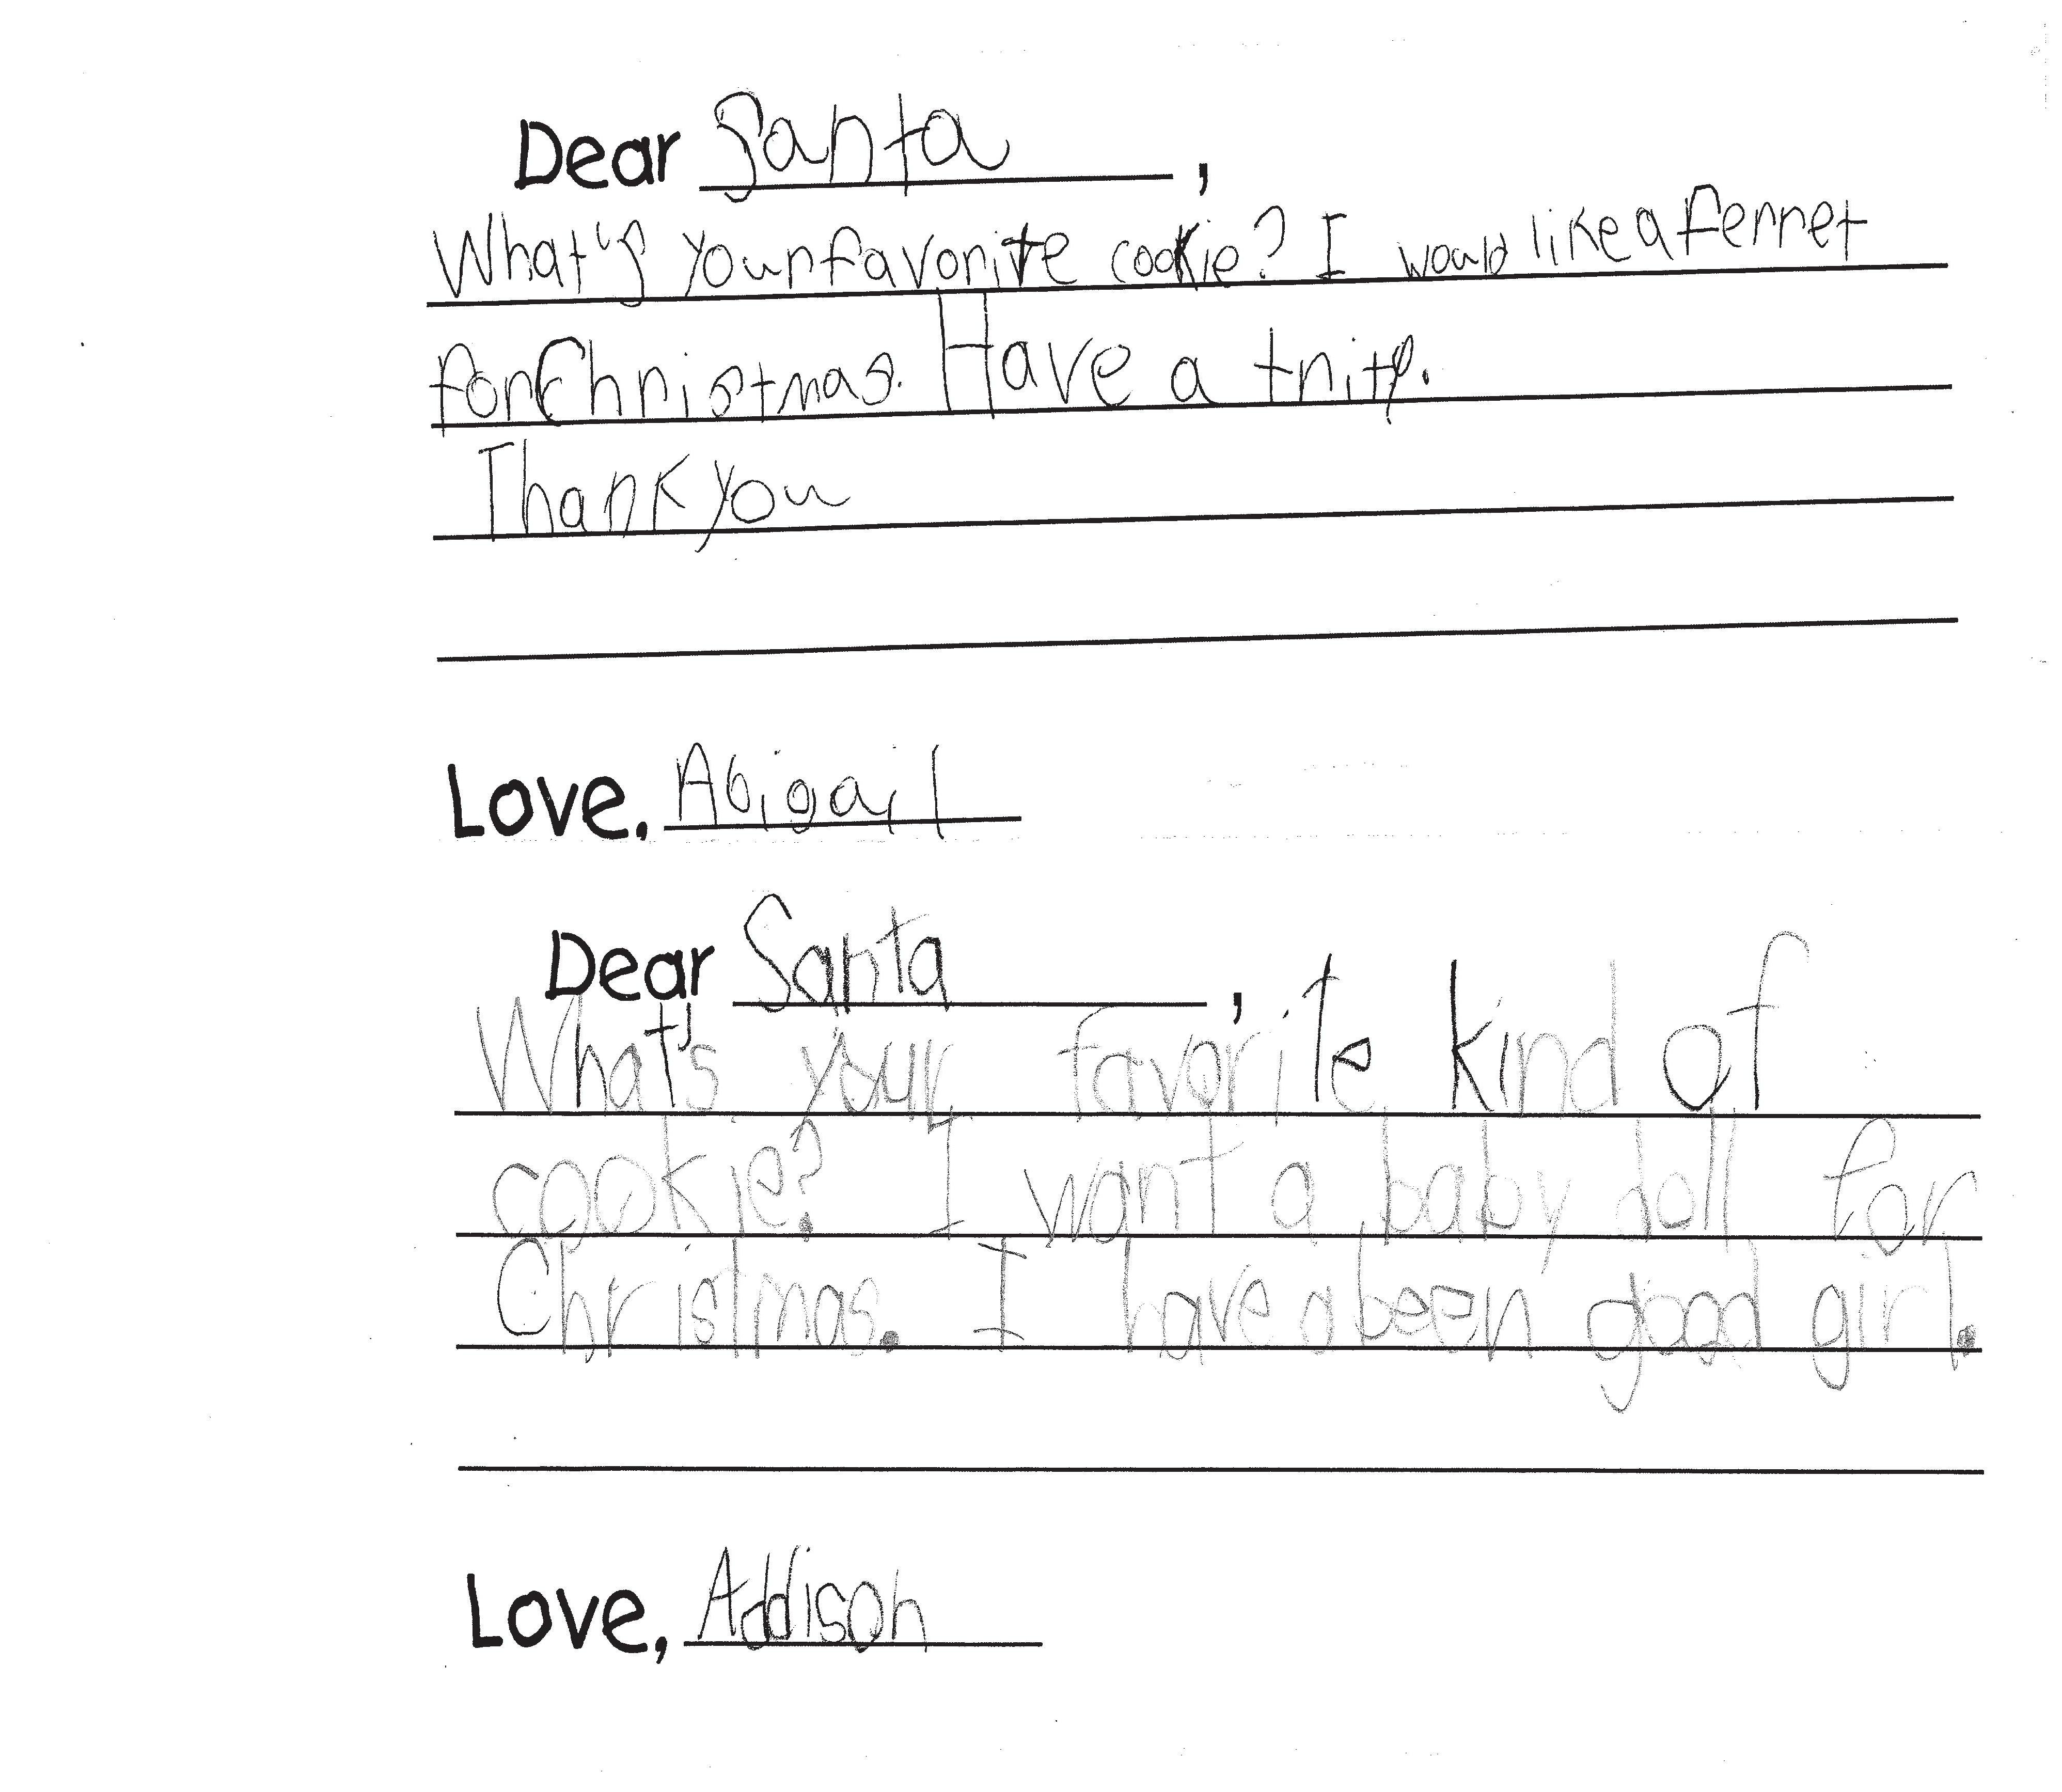 Dear Santa,
What's your favorite cookie? I would like a ferret
for Christmas. Have a tritp.
Thank you
Love, Abigail
Dear Santa,
What's your favorite kind of
cookie? I want a baby doll for
Christmas. I have a been good girl.
Love, Addison